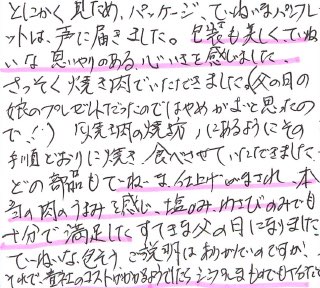 とにかく見ため、パッケージ、ていねいなパンフレ
ットは、声に届きました。包装も美しく、ていね
いな思いやりのある、心いきを感じました。
さっそく焼き肉でいただきました。(父の日の
娘のプレゼントだったのではやめがよいと思ったの
で!!)「焼き肉の焼き方」にあるようにその
手順どおりに焼き、食べさせていただきました。
どの部品もていねいな仕上げがなされ、本
当の肉のうまみを感じ、塩のみ、わさびのみでも
十分で満足した、すてきな父の日になりました。
ていねいな、ご説明はありがたいのですが、
それで、貴社のコストがかかるようでしたらシンプルなもので